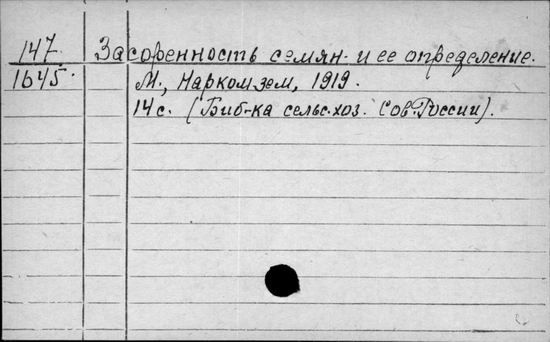 147 Засоренность семян и ее определение.
1645. М., Наркомзем, 1919.
14 с. (Биб-ка сельс.хоз. Сов.России).